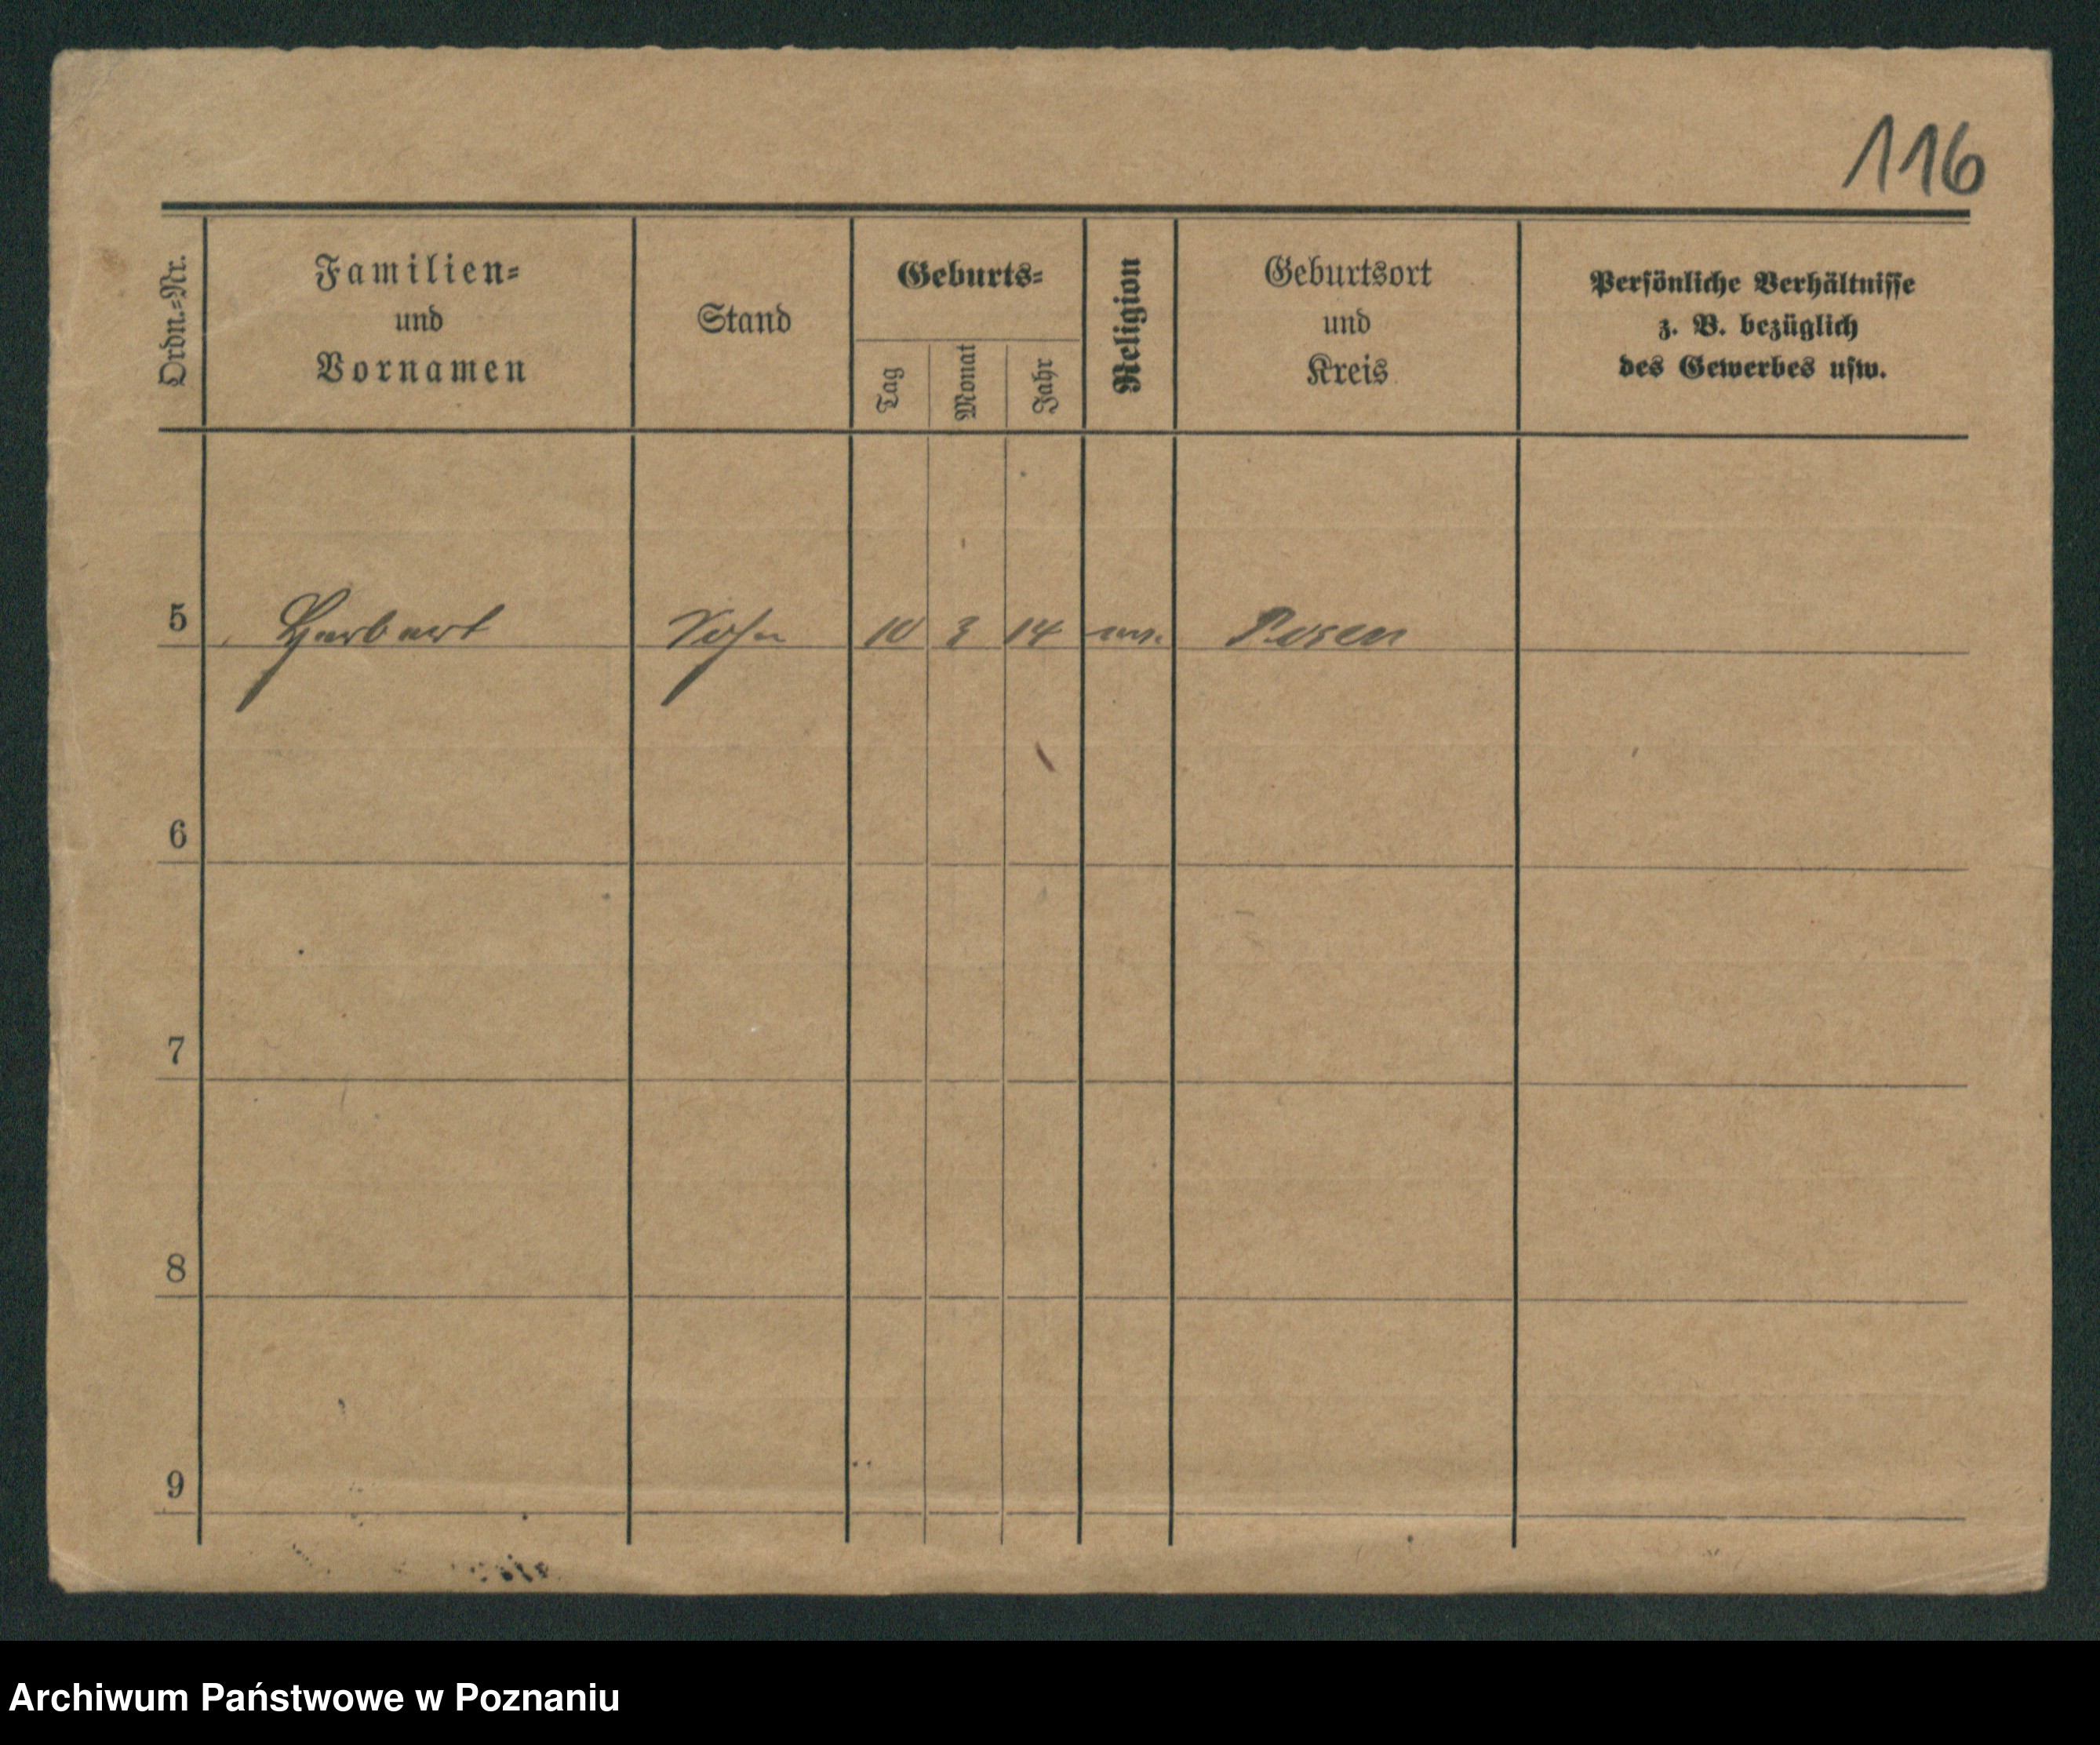 116
Ordn.=Nr.
Familien=
und
Vornamen
Stand
Geburts=
Tag
Monat
Jahr
Religion
Geburtsort
und
Kreis
Persönliche Verhältnisse
z. B. bezüglich
des Gewerbes usw.
5 Herbert Sohn 10 3 14 Posen
6
7
8
9
Archiwum Państwowe w Poznaniu